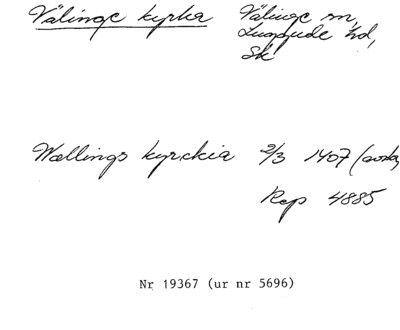 Välinge kyrka Välinge sn,
Luggude hd,
Sk
Wællings kyrckia 2/3 1407 (avskr
Rep 4885
Nr 19367 (ur nr 5696)